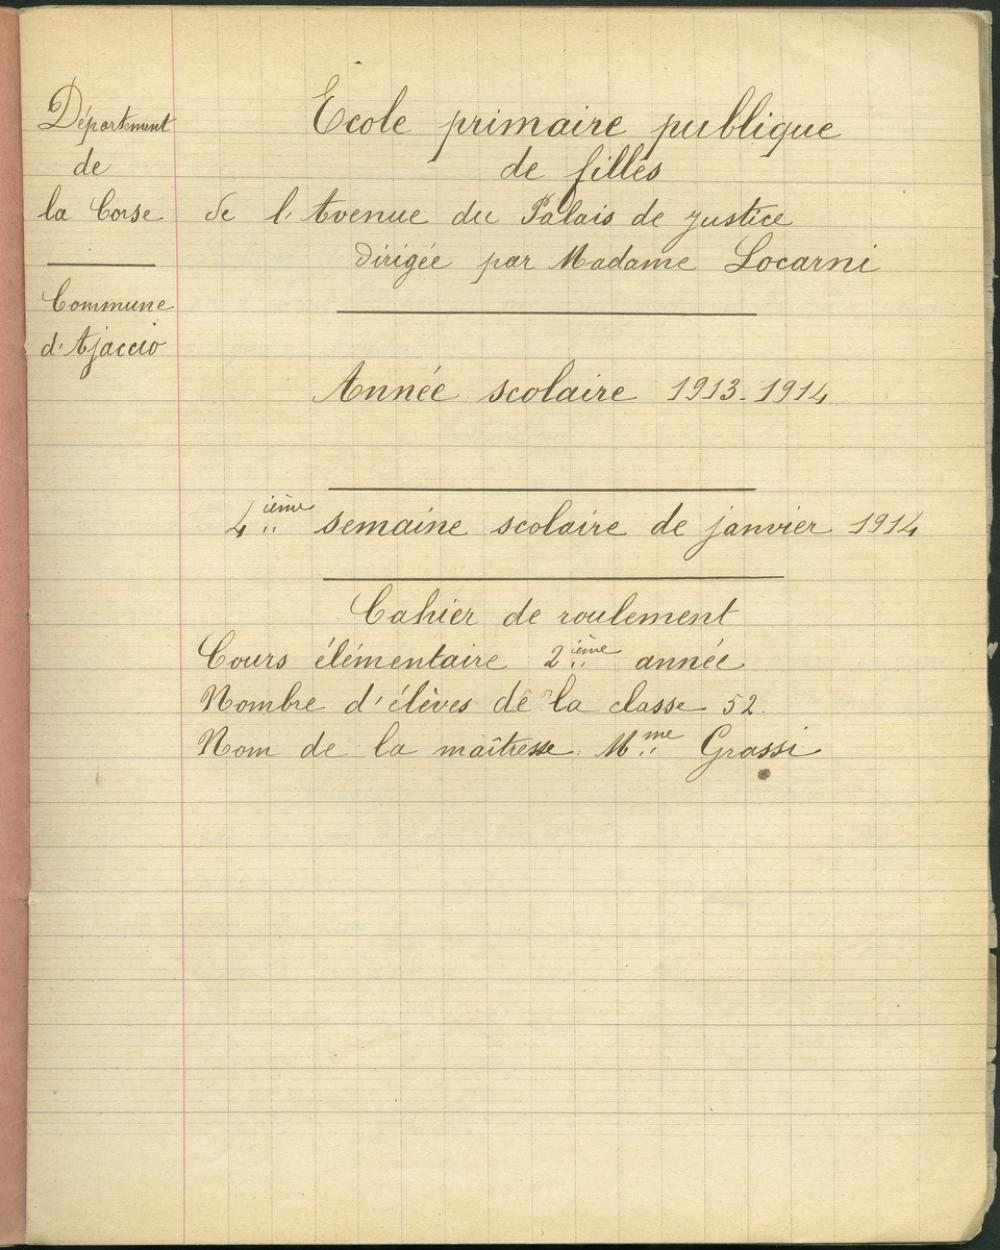 Département
de
la Corse
Commune
d'Ajaccio
Ecole primaire publique
de filles
de l'Avenue du Palais de justice
dirigée par Madame Locarni
Année scolaire 1913-1914
4ième semaine scolaire de janvier 1914
Cahier de roulement
Cours élémentaire 2ième année
Nombre d'élèves de la classe 52.
Nom de la maîtresse. Mme Grassi